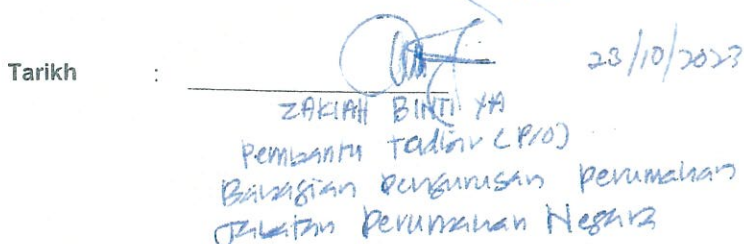 Tarikh : 23/10/2023
ZAKIAH BINTI YA
Pembantu Tadbir (P/O)
Bahagian Pengurusan Perumahan
Jabatan Perumahan Negara